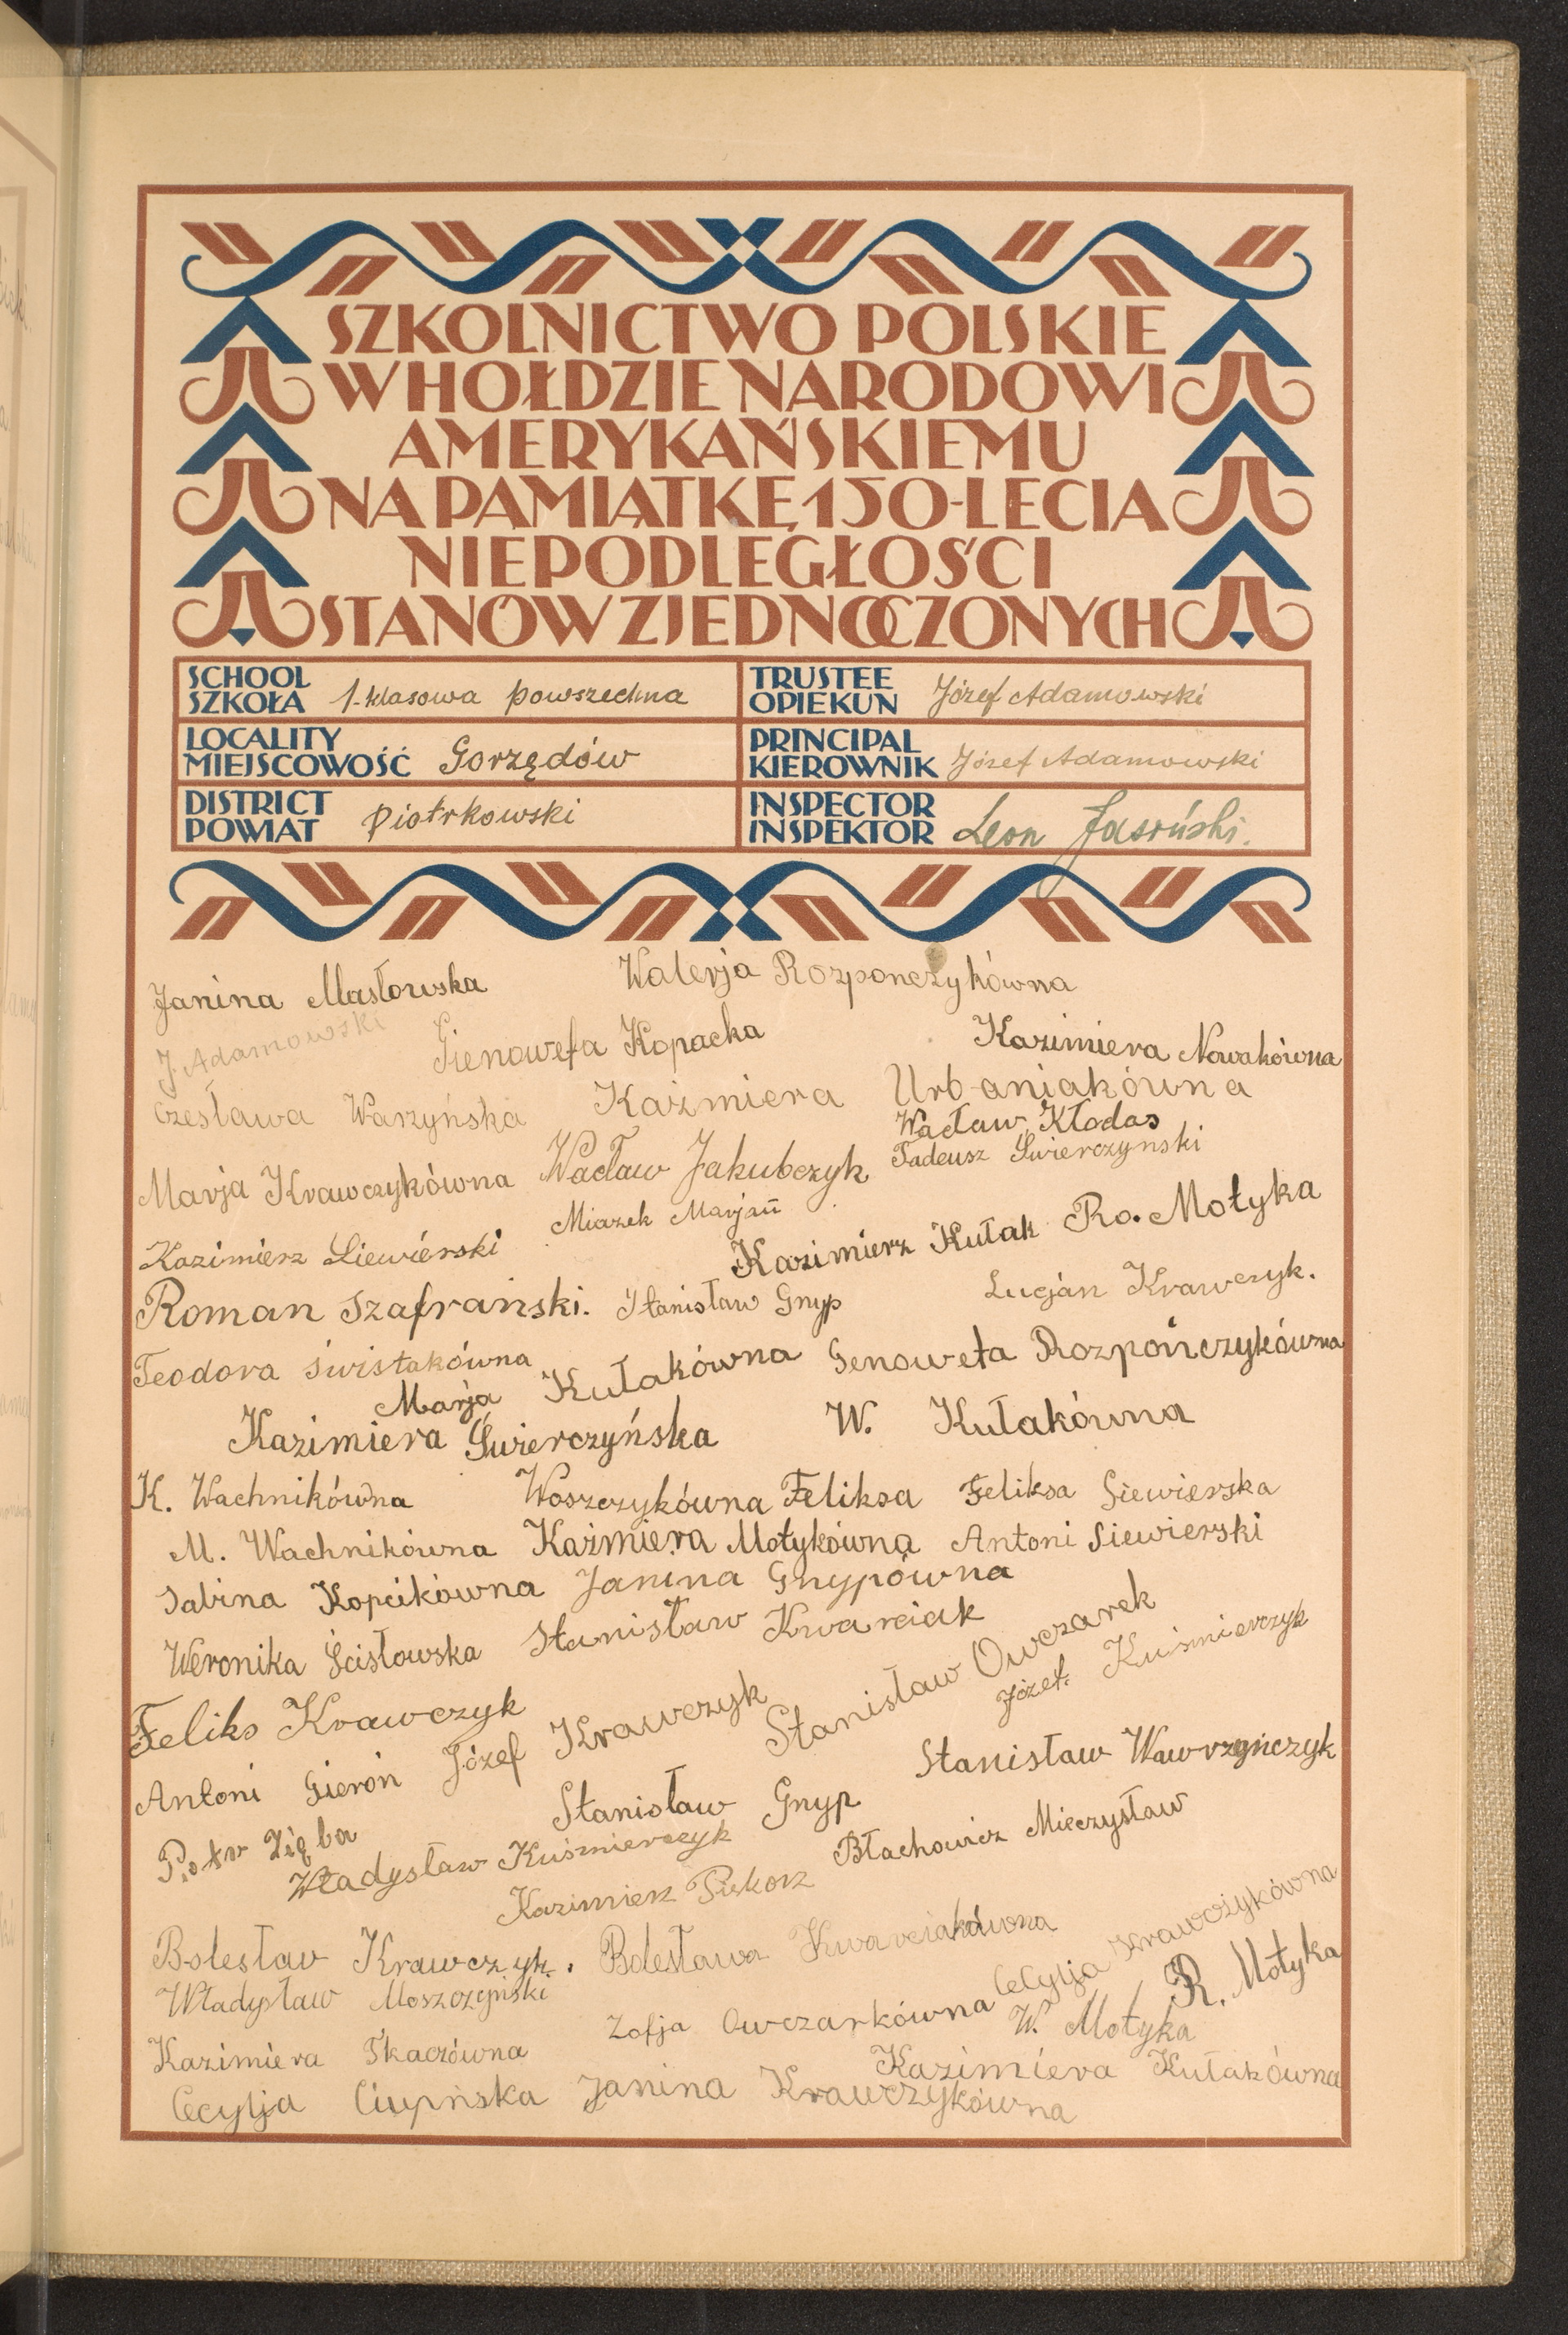 SZKOLNICTWO POLSKIE
W HOŁDZIE NARODOWI
AMERYKAŃSKIEMU
NA PAMIĄTKĘ 150-LECIA
NIEPODLEGŁOŚCI
STANÓW ZJEDNOCZONYCH
SCHOOL
SZKOŁA 1-klasowa powszechna
TRUSTEE
OPIEKUN Józef Adamowski
LOCALITY
MIEJSCOWOŚĆ Gorzędów
PRINCIPAL
KIEROWNIK Józef Adamowski
DISTRICT
POWIAT Piotrkowski
INSPECTOR
INSPEKTOR Leon Jasiński.
Janina Masłowska Walerja Rozponczykówna
J. Adamowski Gienowefa Kopacka Kazimiera Nowakówna
Czesława Warzyńska Kaźmiera Urbaniakówna
Wacław Kłodas
Marja Krawczykówna Wacław Jakubczyk Tadeusz Świerczynski
Kazimierz Siewierski Miazek Marjan
Kazimierz Kułak Ro. Motyka
Roman Szafrański. Stanisław Gnyp Lucjan Krawczyk.
Teodora Świstakówna Marja Kułakówna Genowefa Rozpończykówna
Kazimiera Świerczyńska W. Kułakówna
K. Wachnikówna Woszczykówna Feliksa Feliksa Siewierska
M. Wachnikówna Kaźmiera Motykówna Antoni Siewierski
Sabina Kopcikówna Janina Gnypówna
Weronika Ścisłowska Stanisław Kwarciak
Feliks Krawczyk Józef Krawczyk Stanisław Owczarek Józef Kuśmierczyk
Antoni Gieroń Stanisław Gnyp Stanisław Wawrzyńczyk
Piotr Zięba Władysław Kuśmierczyk Błachowicz Mieczysław
Kazimierz Piekorz
Bolesław Krawczyk. Bolesława Kwarciakówna Cecylja Krawczykówna
Władysław Moszczyński R. Motyka
Zofja Owczarkówna W. Motyka
Kazimiera Tkaczówna Kazimiera Kułakówna
Cecylja Ciupińska Janina Krawczykówna